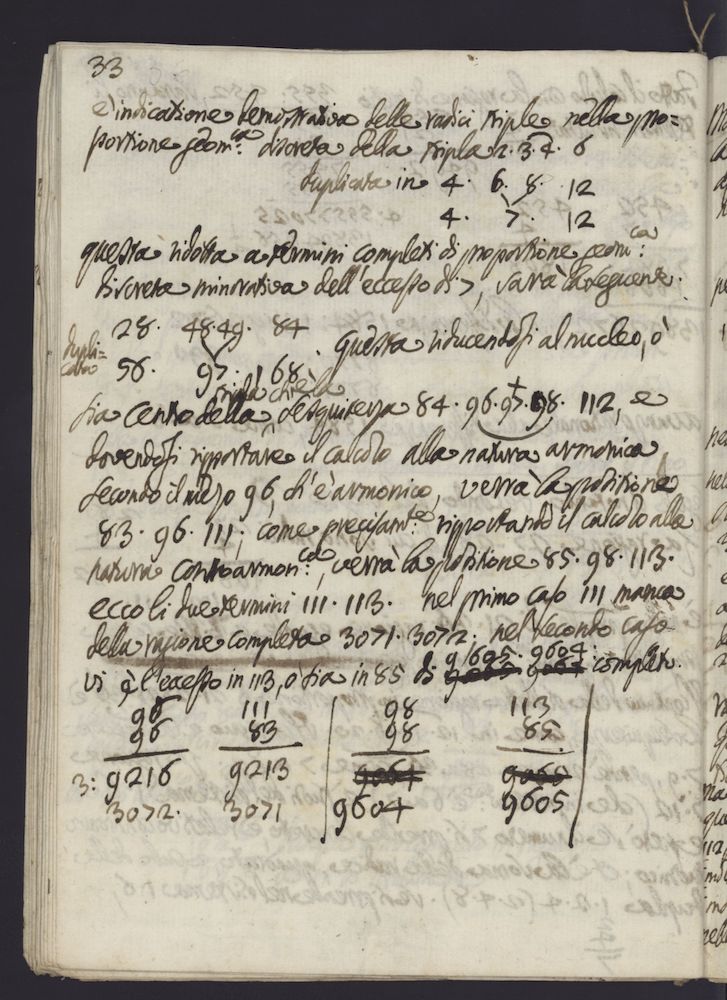 33
e'indicatione demostrativa delle radici triple nella pro=
portione geom:ca discreta della tripla 2. 3. 4. 6
duplicata in 4. 6. 8. 12
4. 7. 12
questa ridotta a termini completi di proportione geom:ca
discreta minorativa dell'eccesso di 7, sarà la seguente.
28. 48. 49. 84
dupli=
cata 56. 97. 168. Questa riducendosi al nucleo, ò
sia Centro della tripla, ch'è la Sesquiterza 84. 96. 97. 98. 112, e
dovendosi riportare il calcolo alla natura armonica
secondo il mezo 96, ch'è armonico, verrà la positione
83. 96. 111; come precisam:te riportando il calcolo alla
natura Contr'armon:ca, verrà la positione 85. 98. 113.
ecco li due termini 111. 113. nel primo caso 111 manca
della ragione completa 3071. 3072. nel secondo caso
vi è l'eccesso in 113, ò sia in 85 di 9605. 9604. complete.
96 111 98 113
96 83 98 85
3: 9216 9213 9064 9065
3072. 3071 9604 9605